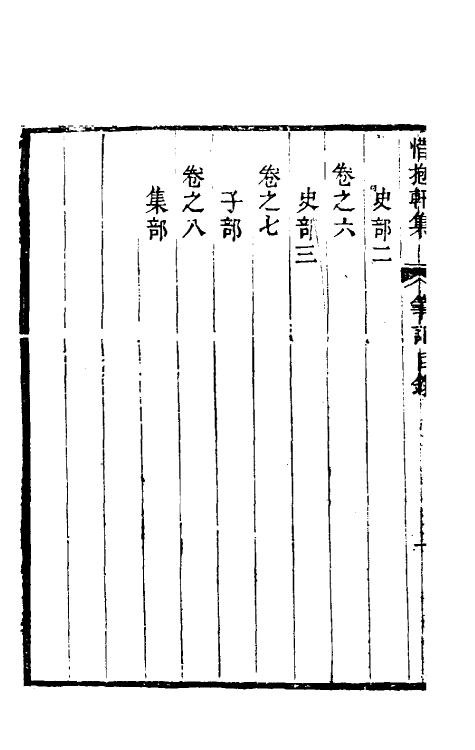 惜抱軒集 筆記目錄
史部二
卷之六
史部三
卷之七
子部
卷之八
集部